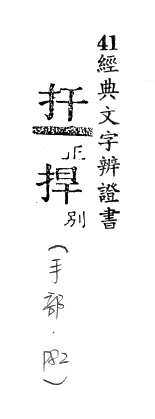 41經典文字辨證書
扞正捍別
(手部.p82)